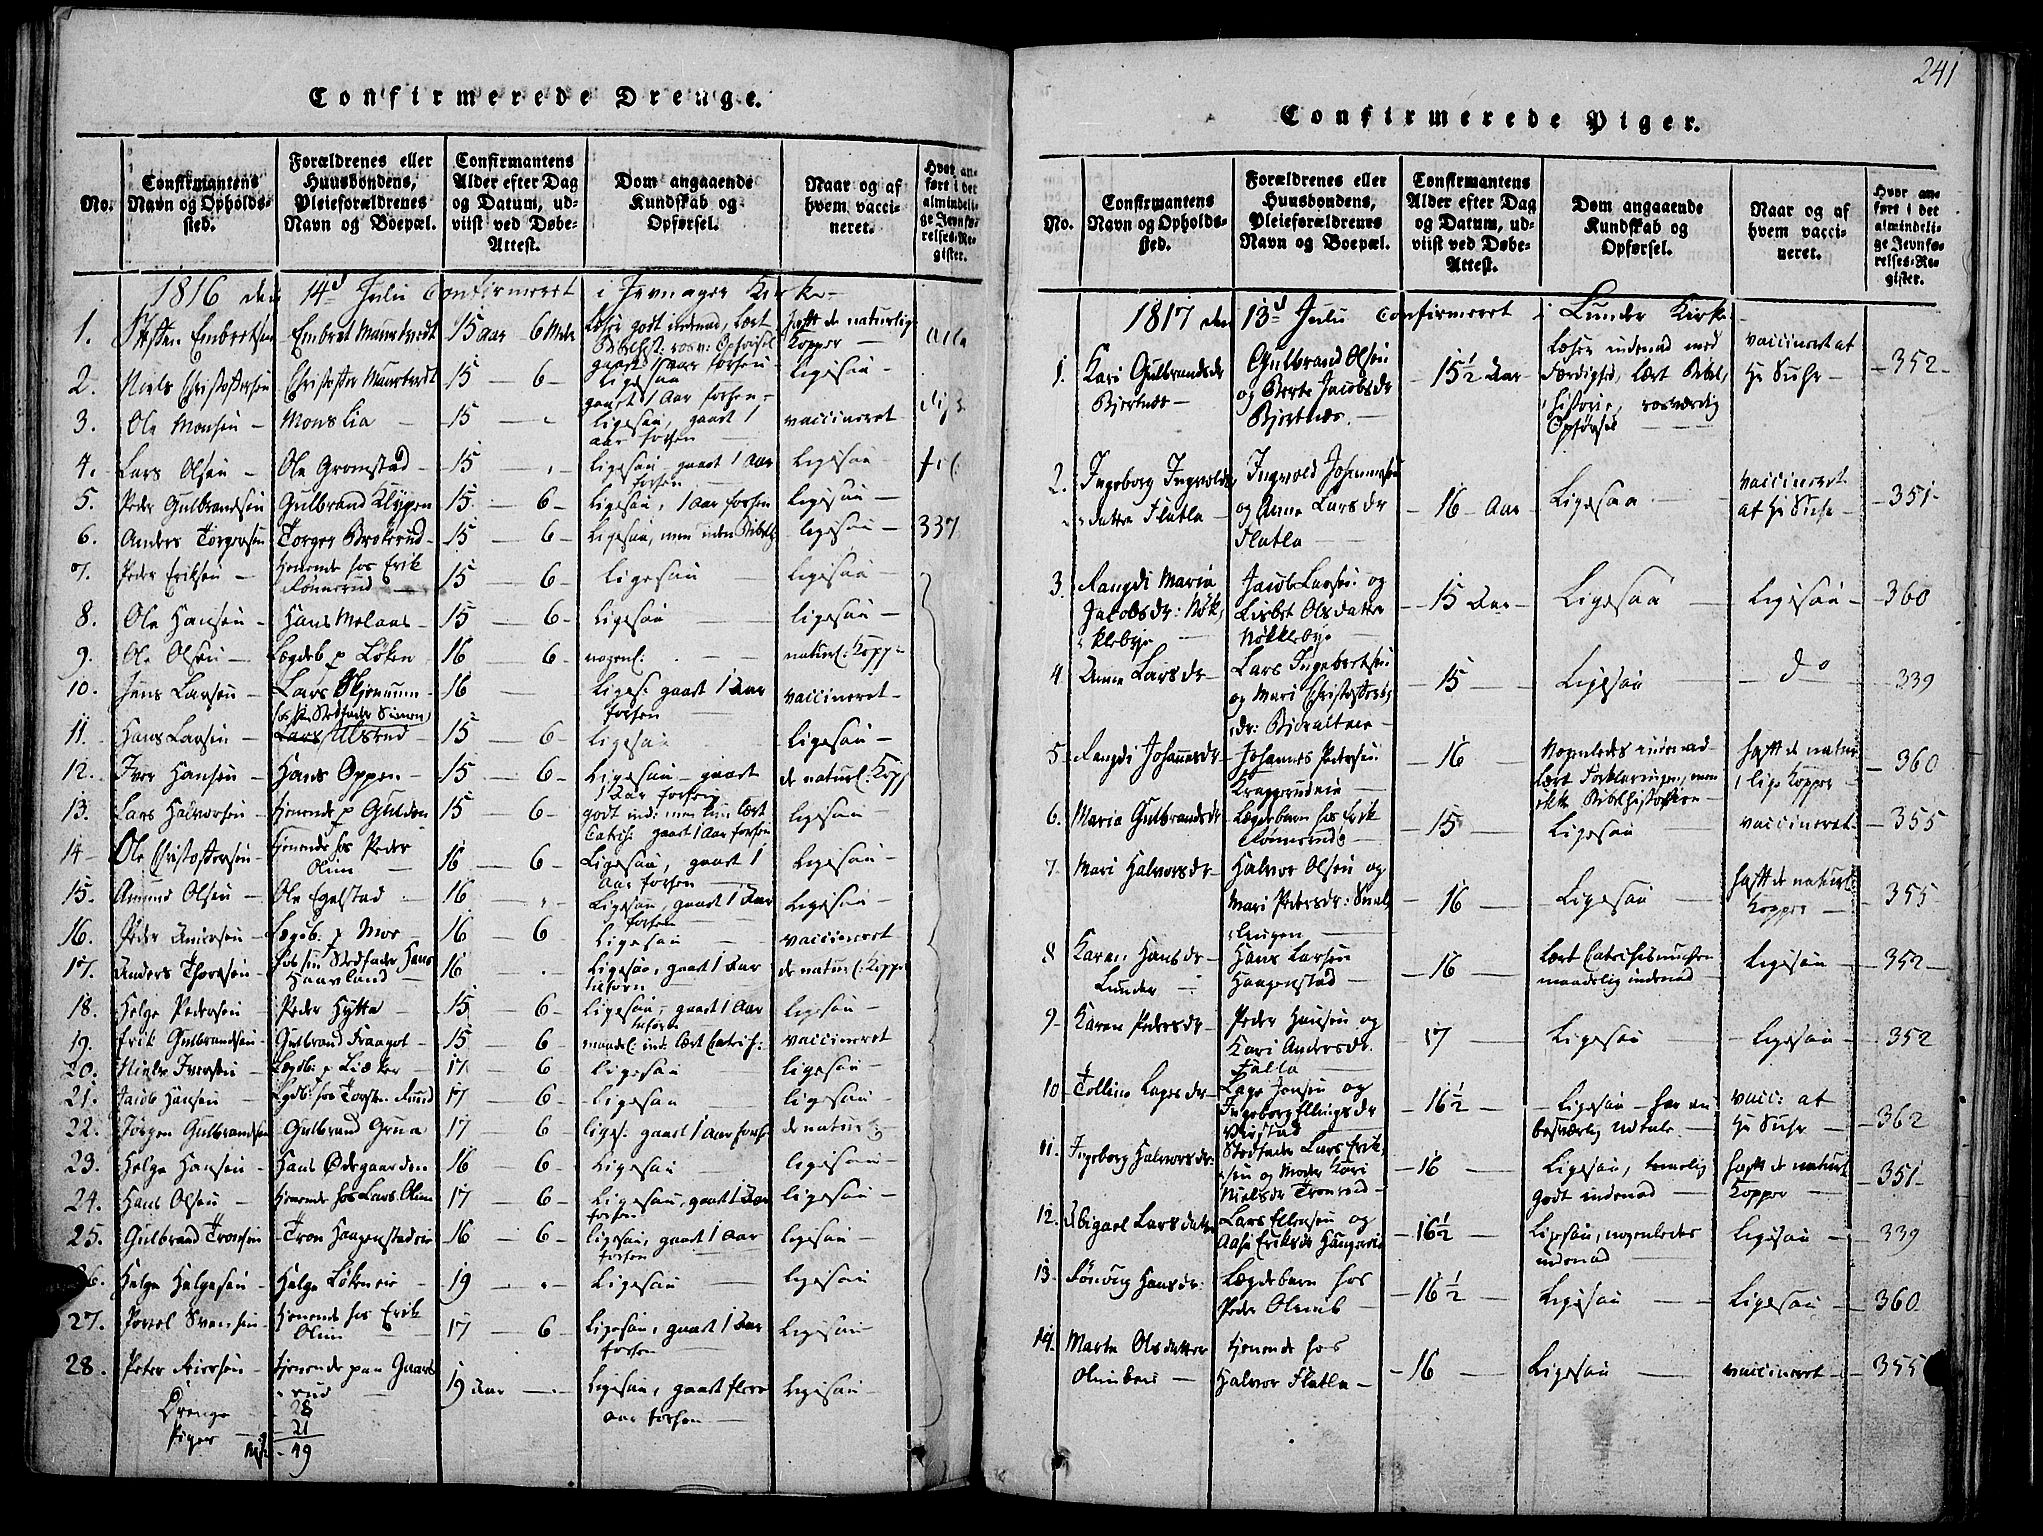 241
Confirmerede Drenge.
No.
Confirmantens Navn og Opholdssted.
Forældrenes eller Huusbondens, Pleieforældrenes Navn og Boepæl.
Confirmantens Alder efter Dag og Datum, udviist ved Døbe-Attest.
Dom angaaende Kundskab og Opførsel.
Naar og af hvem vaccineret.
Hvor anført i det almindelige Jevnførelses-Register.
1816 den 14d Julu Confirmeret i Jevnager Kirke
1. Embretsen Embret 15 aar 6 Mdr Læser godt indenad, lært de naturlige Kopper
2. Niels Christoffersen Christoffer 15 6 Ligesaa gaaet 1 Aar forhen ligesaa
3. Ole Monsen Mons Lia 15 ligesaa, gaaet 1 aar forhen vaccineret
4. Lars Olsen Ole Gromstad 15 ligesaa, gaaet 1 Aar forhen ligesaa
5. Peder Gulbrandsen Gulbrand Klypen 15 6 ligesaa, 1 Aar forhen ligesaa
6. Anders Torgersen Torger Brokerud 15 6 Ligesaa, men uden ligesaa 337
7. Peder Eriksen tienende hos Erik Rønnerud 15 6 ligesaa ligesaa
8. Ole Hansen Hans Melaas 15 6 Ligesaa ligesaa
9. Ole Olsen Lægdeb p Løken 16 6 naturl: Kopp
10. Jens Larsen Lars 16 liges: gaaet 1 Aar forhen vaccineret
11. Hans Larsen hos Stedfader Simen Ulsrud 15 6 ligesaa ligesaa
12. Iver Hansen Hans Oppen 15 6 Ligesaa gaaet 1 Aar forhen de naturl: Kopp
13. Lars Halvorsen tienende p Gulden 15 6 godt ind: men kun lært Catech: gaaet 1 Aar forhen ligesaa
14 Ole Christoffersen tienende hos Peder Olim 16 6 Ligesaa, gaaet 1 Aar forhen ligesaa
15. Amund Olsen Ole Egelstad 16 Ligesaa, gaaet 1 Aar forhen ligesaa
16. Peder Andersen Lægdb: p Moe 16 6 Ligesaa vaccineret
17. Anders Thoresen hos sin Stedfader Hans Haavland 16 ligesaa, gaaet 1 Aar tilforn de naturl: Kopper
18. Helge Pedersen Peder Hytta 15 6 ligesaa, gaaet 1 Aar tilforn ligesaa
19. Erik Gulbrandsen Gulbrand Fraagot 15 6 maadel: ind: lært Catech: vaccineret
20. Niels Iversen Lægdb: p Lieker 17 6 ligesaa ligesaa
21. Jacob Hansen Lgdb: hos Torsten Ruud 17 6 Ligesaa ligesaa
22. Jørgen Gulbrandsen Gulbrand Grua 17 6 liges: gaaet 1 Aar forh: de naturl:
23. Helge Hansen Hans Ødegaarden 16 6 Ligesaa ligesaa
24. Hans Olsen tienende hos Lars Olim 17 6 Ligesaa, gaaet 1 Aar forhen ligesaa
25. Gulbrand Tronsen Tron Haagenstadeie 16 6 ligesaa, gaaet 1 Aar forhen ligesaa
26. Helge Helgesen Helge Løkeneie 19 Ligesaa ligesaa
27. Povel Svensen tienende hos Erik Olim 17 6 Ligesaa, gaaet 1 Aar forhen ligesaa
28. Peter tienende paa Gaarderud 19 Aar Ligesaa, gaaet flere aar forhen Ligesaa
Drenge 28
Piger 21
49
Confirmerede Piger.
No.
Confirmantens Navn og Opholdssted.
Forældrenes eller Huusbondens, Pleieforældrenes Navn og Boepæl.
Confirmantens Alder efter Dag og Datum, udviist ved Døbe-Attest.
Dom angaaende Kundskab og Opførsel.
Naar og af hvem vaccineret.
Hvor anført i det almindelige Jevnførelses-Register.
1817 den 13d Julu Confirmeret i Lunder Kirke
1. Kari Gulbrandsdr Bjertnæs Gulbrand Olsen og Berte Jacobsdr Bjertnæs. 15½ Aar Læser indenad med Færdighed, lært Bibelhistorie, rosværdig Opførsel vaccineret af Hr Suhr 352
2. Ingeborg Ingvoldsdatter Flatla Ingvold Johannesen og Anne Larsdr Flatla 16 Aar Ligesaa vaccineret af Hr Suhr 351
3. Rangdi Maria Jacobsdr: Nøkklebye Jacob Larsen og Lisbet Olsdatter Nøkklebye 15 Aar Ligesaa Ligesaa 360
4 Anne Larsdr Lars Ingebretsen og Mari Christoffersdr: Bieralteie 15 Ligesaa do 339
5 Rangdi Johannesdr Johannes Pedersen Kraggerudeie 16 Nogenledes indenad lært Forklaringen, men ikke Bibelhistorien havt de naturlige Kopper 360
6. Maria Gulbrandsdr Lægdebarn hos Erik Rønnerud 15 Ligesaa vaccineret 355
7. Mari Halvorsdr Halvor Olsen og Mari Pedersdr: 16 Ligesaa havt de naturl: Kopper 355
8 Karen Hansdr Lunder Hans Larsen Haagenstad 16 lært Catechismussen maadelig indenad Ligesaa 352
9 Karen Pedersdr Peder Hansen og Kari Andersdr. Falla 17 Ligesaa Ligesaa 352
10 Tolline Lagesdr Lage Jensen og Ingeborg Ellingsdr 16½ Ligesaa har en besværlig Udtale vacc: af Hr Suhr 362
11. Ingeborg Halvorsdr: Stedfader Lars Eriksen og Moder Kari Nielsdr Tronrud 16 Ligesaa, temelig godt indenad havt de naturl Kopper 351
12. Abigael Larsdatter Lars Ellensen og Aase Eriksdr Haugerie 16½ Ligesaa, nogenledes indenad Ligesaa 339
13 Rønoug Hansdr: Lægdebarn hos Peder Olimb 16½ Ligesaa Ligesaa 360
14. Marte Olsdatter Olimbeie tjenende hos Halvor Flatla 16 Ligesaa vaccineret 355